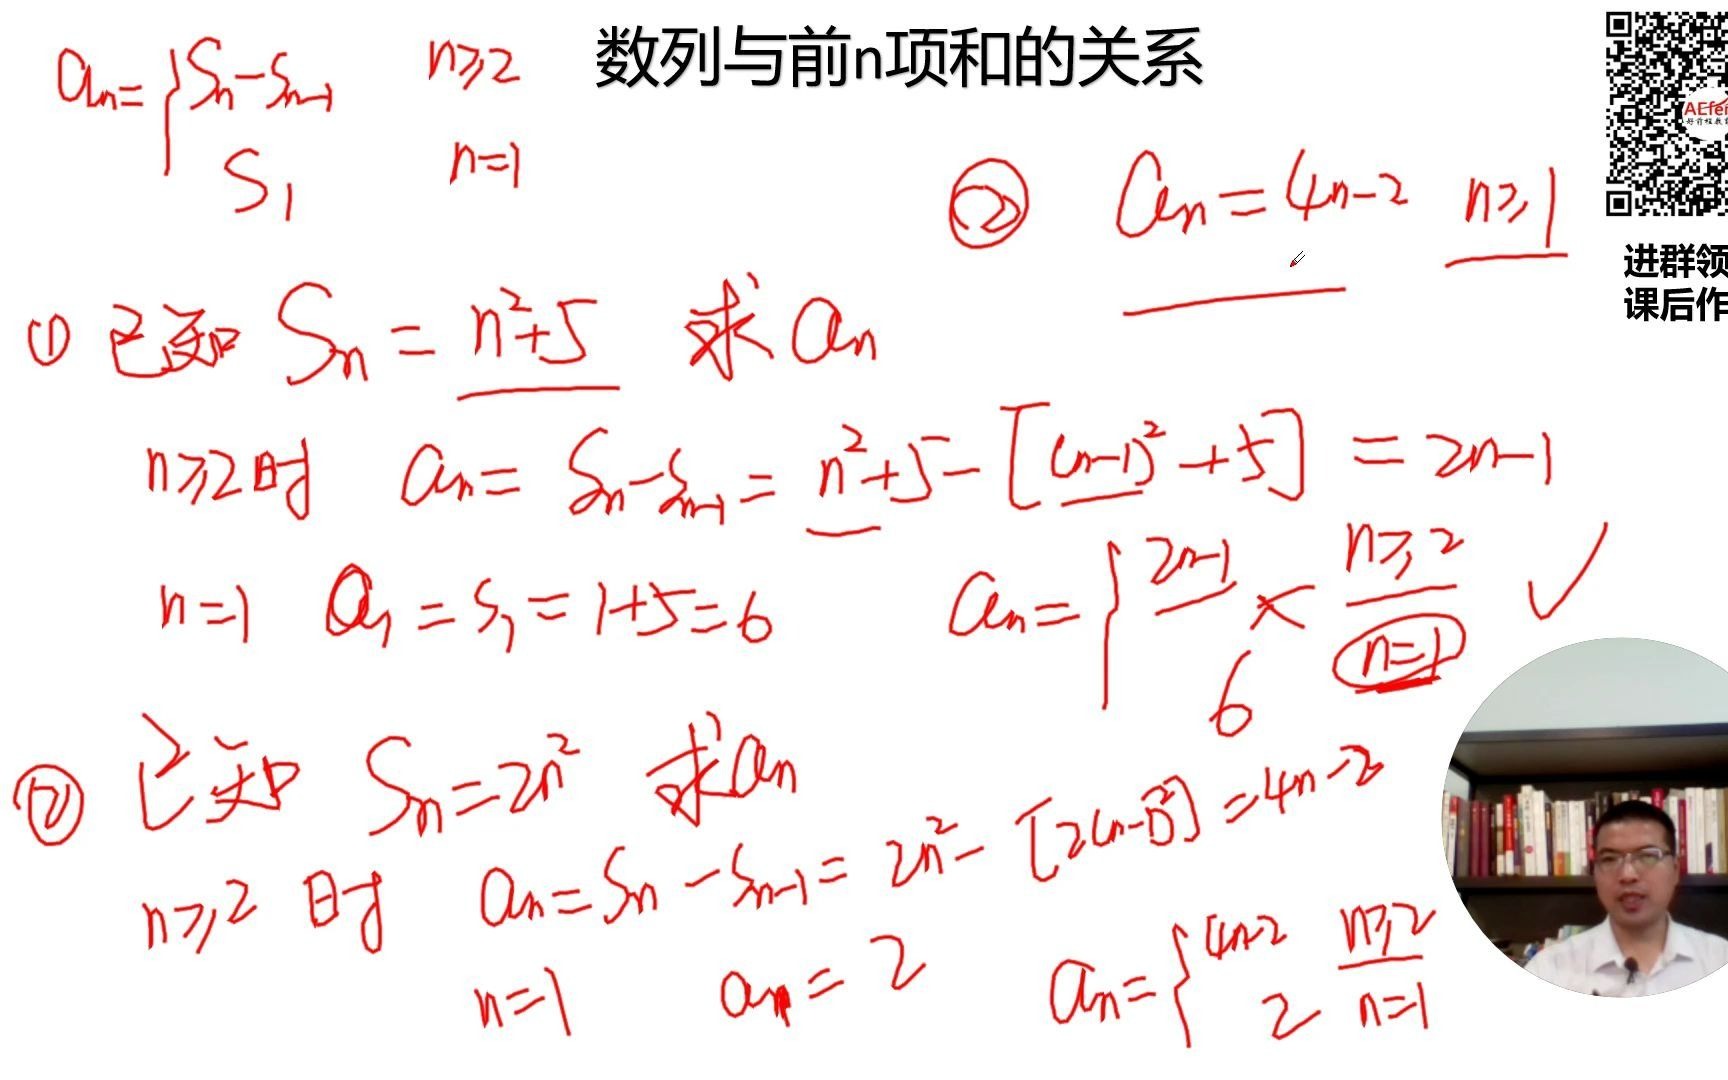 数列与前n项和的关系
an={Sn-Sn-1 n≥2
S1 n=1
② an=4n-2 n≥1
进群领
课后作
① 已知 Sn=n²+5 求an
n≥2时 an=Sn-Sn-1=n²+5-[(n-1)²+5]=2n-1
n=1 a1=S1=1+5=6
an={2n-1 × n≥2 ✓
6 n=1
② 已知 Sn=2n² 求an
n≥2时 an=Sn-Sn-1=2n²-[2(n-1)²]=4n-2
n=1 a1=2
an={4n-2 n≥2
2 n=1